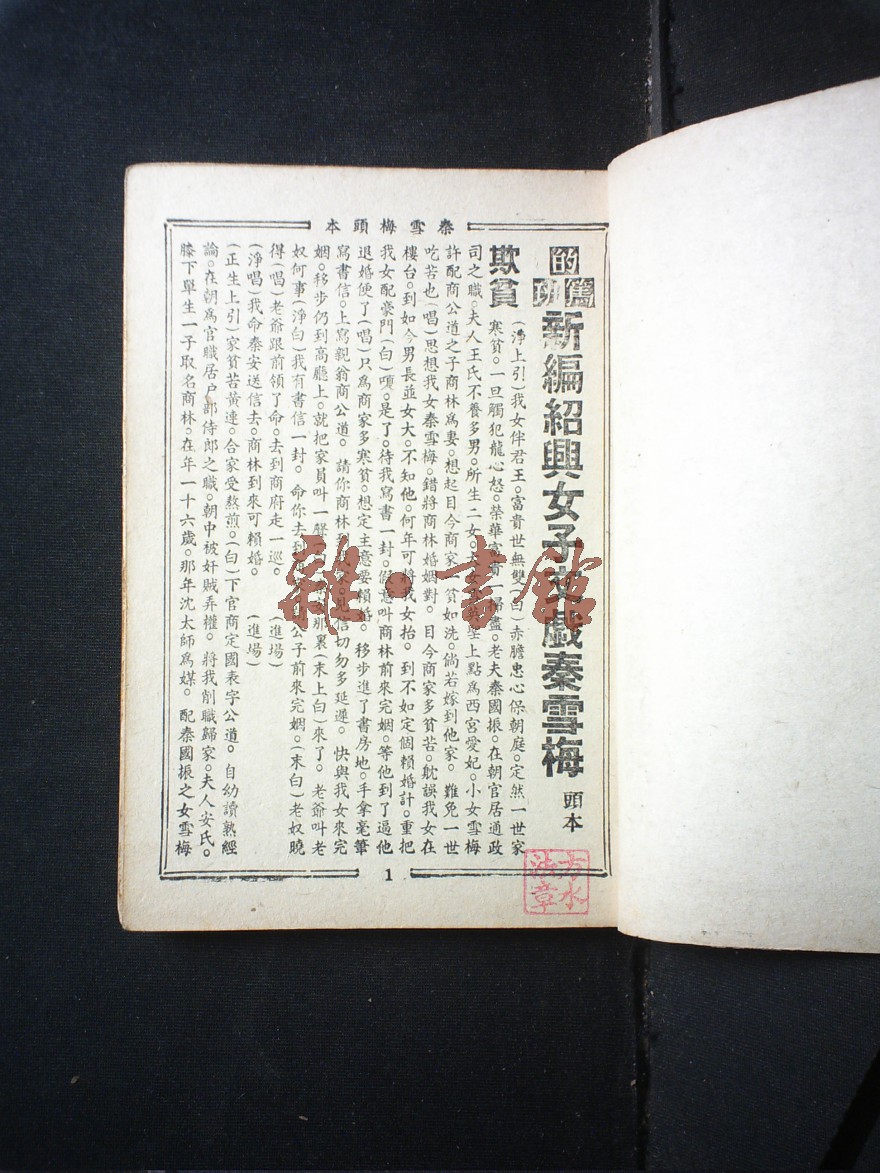 秦雪梅頭本
的篤班
新編紹興女子文戲秦雪梅 頭本
欺貧
(淨上引)我女伴君王。富貴世無雙(白)赤膽忠心保朝庭。定然一世家
寒貧。一旦觸犯龍心怒。榮華富貴一掃盡。老夫秦國振。在朝官居通政
司之職。夫人王氏不養多男。所生二女。大女 上點為西宮愛妃。小女雪梅
許配商公道之子商林為妻。想起目今商家一貧如洗。倘若嫁到他家。難免一世
吃苦也(唱)思想我女秦雪梅。錯將商林婚姻對。目今商家多貧苦。躭誤我女在
樓台。到如今男長並女大。不知他。何年可將我女抬。到不如定個賴婚計。重把
我女配豪門(白)嗄。是了。待我寫書一封。假意叫商林前來完姻。等他到了逼他
退婚便了(唱)只為商家多寒貧。想定主意要賴婚。移步進了書房地。手拿毫筆
寫書信。上寫親翁商公道。請你商林到 見信切勿多延遲。快與我女來完
姻。移步仍到高廳上。就把家員叫一聲 那裏(末上白)來了。老爺叫老
奴何事(淨白)我有書信一封。命你去到 公子前來完姻。(末白)老奴曉
得(唱)老爺跟前領了命。去到商府走一巡。 (進場)
(淨唱)我命秦安送信去。商林到來可賴婚。 (進場)
(正生上引)家貧苦黃連。合家受熬煎。(白)下官商定國表字公道。自幼讀熟經
論。在朝為官職居户部侍郎之職。朝中被奸賊弄權。將我削職歸家。夫人安氏。
膝下單生一子取名商林。在年一十六歲。那年沈太師為媒。配秦國振之女雪梅
1
雜·書館
方水
章